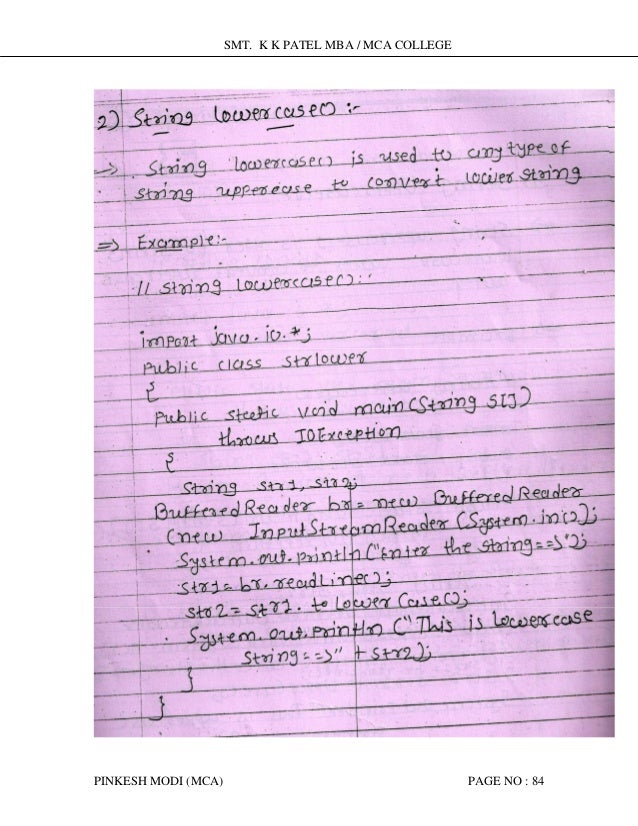 SMT. K K PATEL MBA / MCA COLLEGE
2) String lowercase() :-
=> String lowercase() is used to any type of
string uppercase to convert lower string
=> Example:-
// string lowercase():-
import java.io.*;
Public class strlower
{
Public static void main(String S[])
throws IOException
{
String str1, str2;
BufferedReader br = new BufferedReader
(new InputStreamReader (System.in));
System.out.println("Enter the string==>");
str1=br.readLine();
str2=str1.toLowerCase();
System.out.println ("This is lowercase
string==>" + str2);
}
}
PINKESH MODI (MCA) PAGE NO : 84